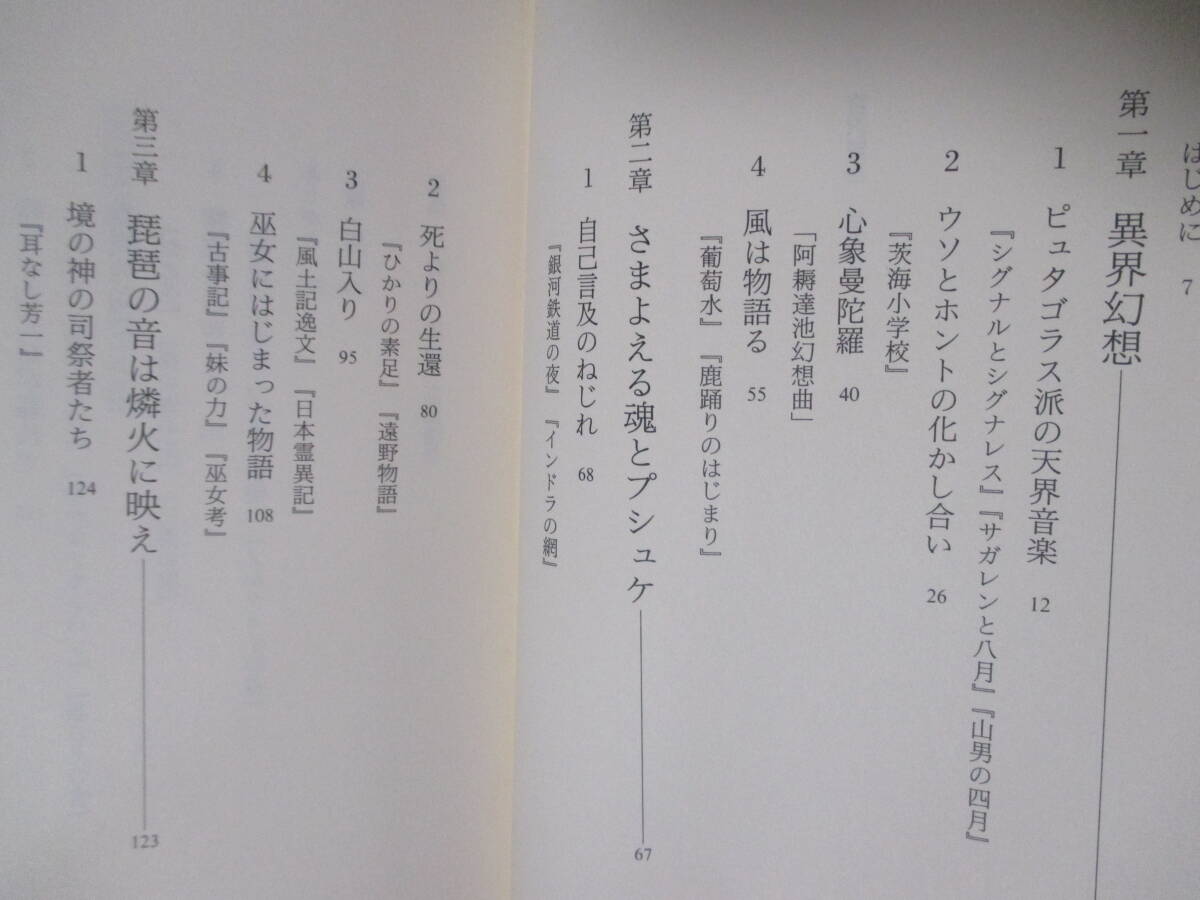 はじめに 7
第一章 異界幻想
1 ピュタゴラス派の天界音楽 12
『シグナルとシグナレス』『サガレンと八月』『山男の四月』
2 ウソとホントの化かし合い 26
『茨海小学校』
3 心象曼陀羅 40
「阿耨達池幻想曲」
4 風は物語る 55
『葡萄水』『鹿踊りのはじまり』
第二章 さまよえる魂とプシュケ 67
1 自己言及のねじれ 68
『銀河鉄道の夜』『インドラの網』
2 死よりの生還 80
『ひかりの素足』『遠野物語』
3 白山入り 95
『風土記逸文』『日本霊異記』
4 巫女にはじまった物語 108
『古事記』『妹の力』『巫女考』
第三章 琵琶の音は燐火に映え 123
1 境の神の司祭者たち 124
『耳なし芳一』